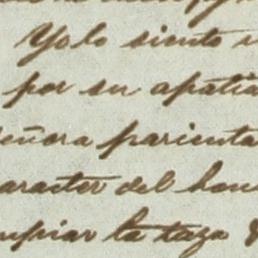 Yo lo siento
por su apatia
señora parienta
caracter del hon
la taza